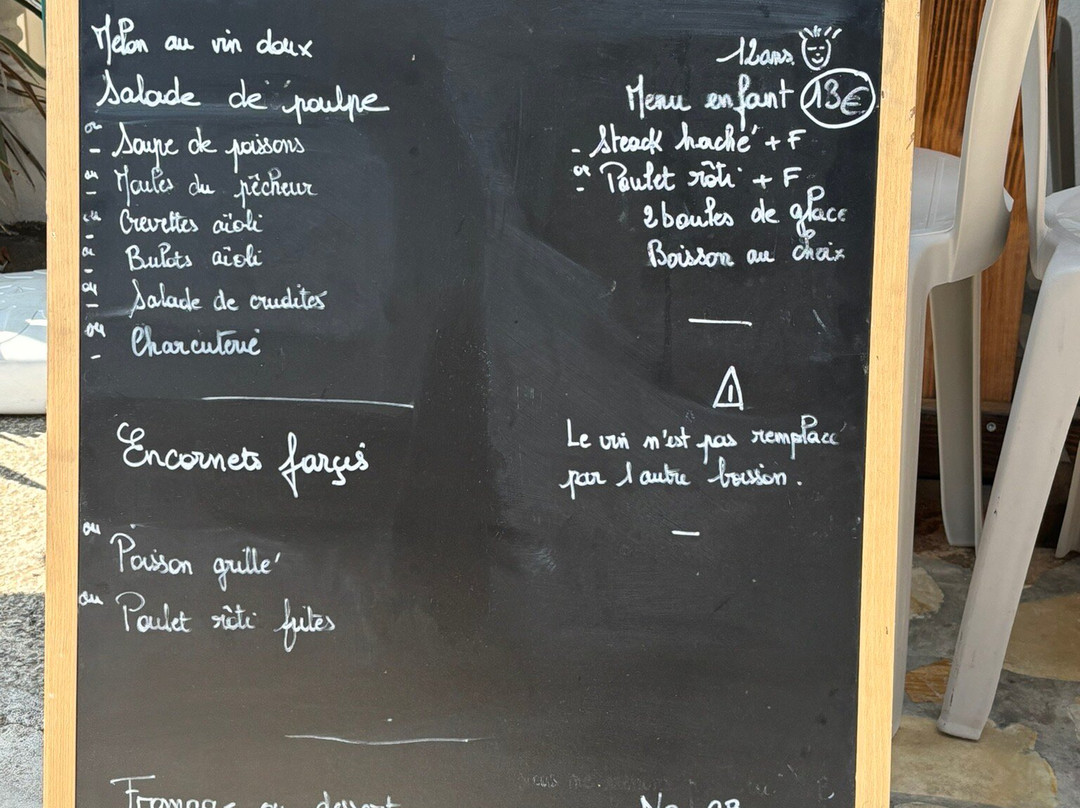 Melon au vin doux
Salade de poulpe
ou
- Soupe de poissons
ou
- Moules du pêcheur
ou
- Crevettes aïoli
ou
- Bulots aïoli
ou
- Salade de crudités
ou
- Charcuterie
Encornets farçis
ou
Poisson grillé
ou
Poulet rôti frites
Fromage ou dessert
12 ans
Menu enfant 13€
- Steack haché + F
ou
- Poulet rôti + F
2 boules de glace
Boisson au choix
Le vin n'est pas remplacé
par 1 autre boisson.